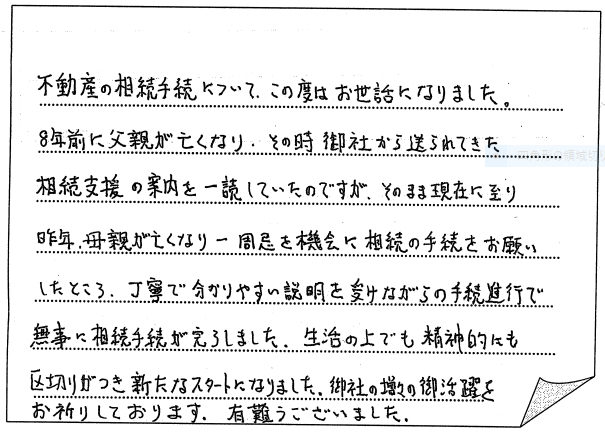 不動産の相続手続について、この度はお世話になりました。
8年前に父親が亡くなり、その時御社から送られてきた
相続支援の案内を一読していたのですが、そのまま現在に至り
昨年、母親が亡くなり一周忌を機会に相続の手続をお願い
したところ、丁寧で分かりやすい説明を受けながらの手続進行で
無事に相続手続が完了しました。生活の上でも精神的にも
区切りがつき新たなスタートになりました。御社の増々の御活躍を
お祈りしております。有難うございました。